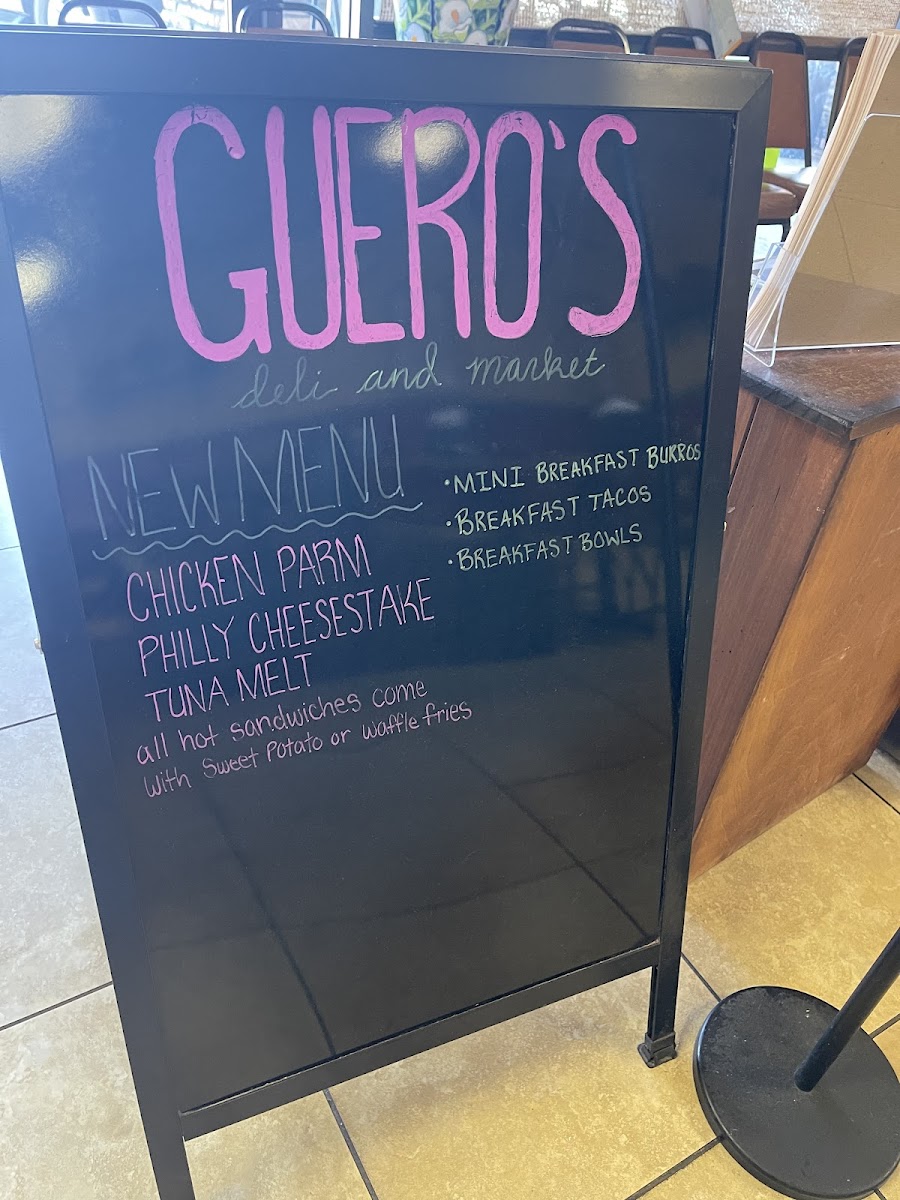 GUERO'S
deli and market
NEW MENU
CHICKEN PARM
PHILLY CHEESESTAKE
TUNA MELT
all hot sandwiches come
With Sweet Potato or waffle fries
·MINI BREAKFAST BURROS
·BREAKFAST TACOS
·BREAKFAST BOWLS